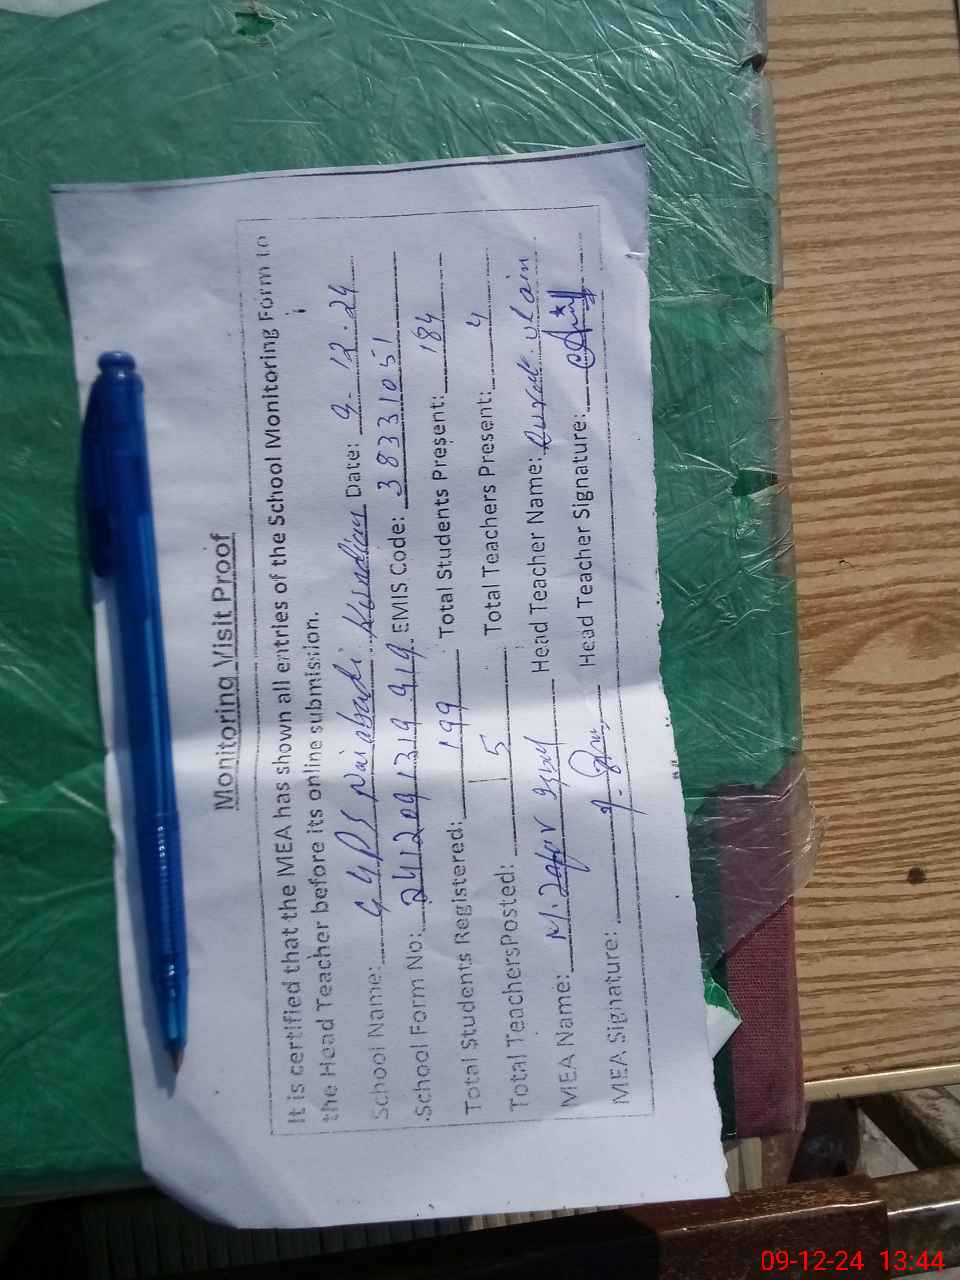 Monitoring Visit Proof
It is certified that the MEA has shown all entries of the School Monitoring Form to
the Head Teacher before its online submission.
School Name: GGPS Naiabadi Kundian Date: 9-12-24
School Form No: 2412091319919 EMIS Code: 38331051
Total Students Registered: 199 Total Students Present: 184
Total TeachersPosted: 5 Total Teachers Present: 4
MEA Name: M. Zafar Head Teacher Name:
MEA Signature: Head Teacher Signature:
09-12-24 13:44